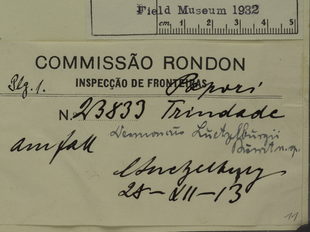 Field Museum 1932
cm 1 2 3 4 5
COMMISSÃO RONDON
INSPECÇÃO DE FRONTEIRAS
Plz. 1. Papori
N. 23833 Trindade
Luetzelburgii
am fall
Luetzelburg
28-XII-13
11